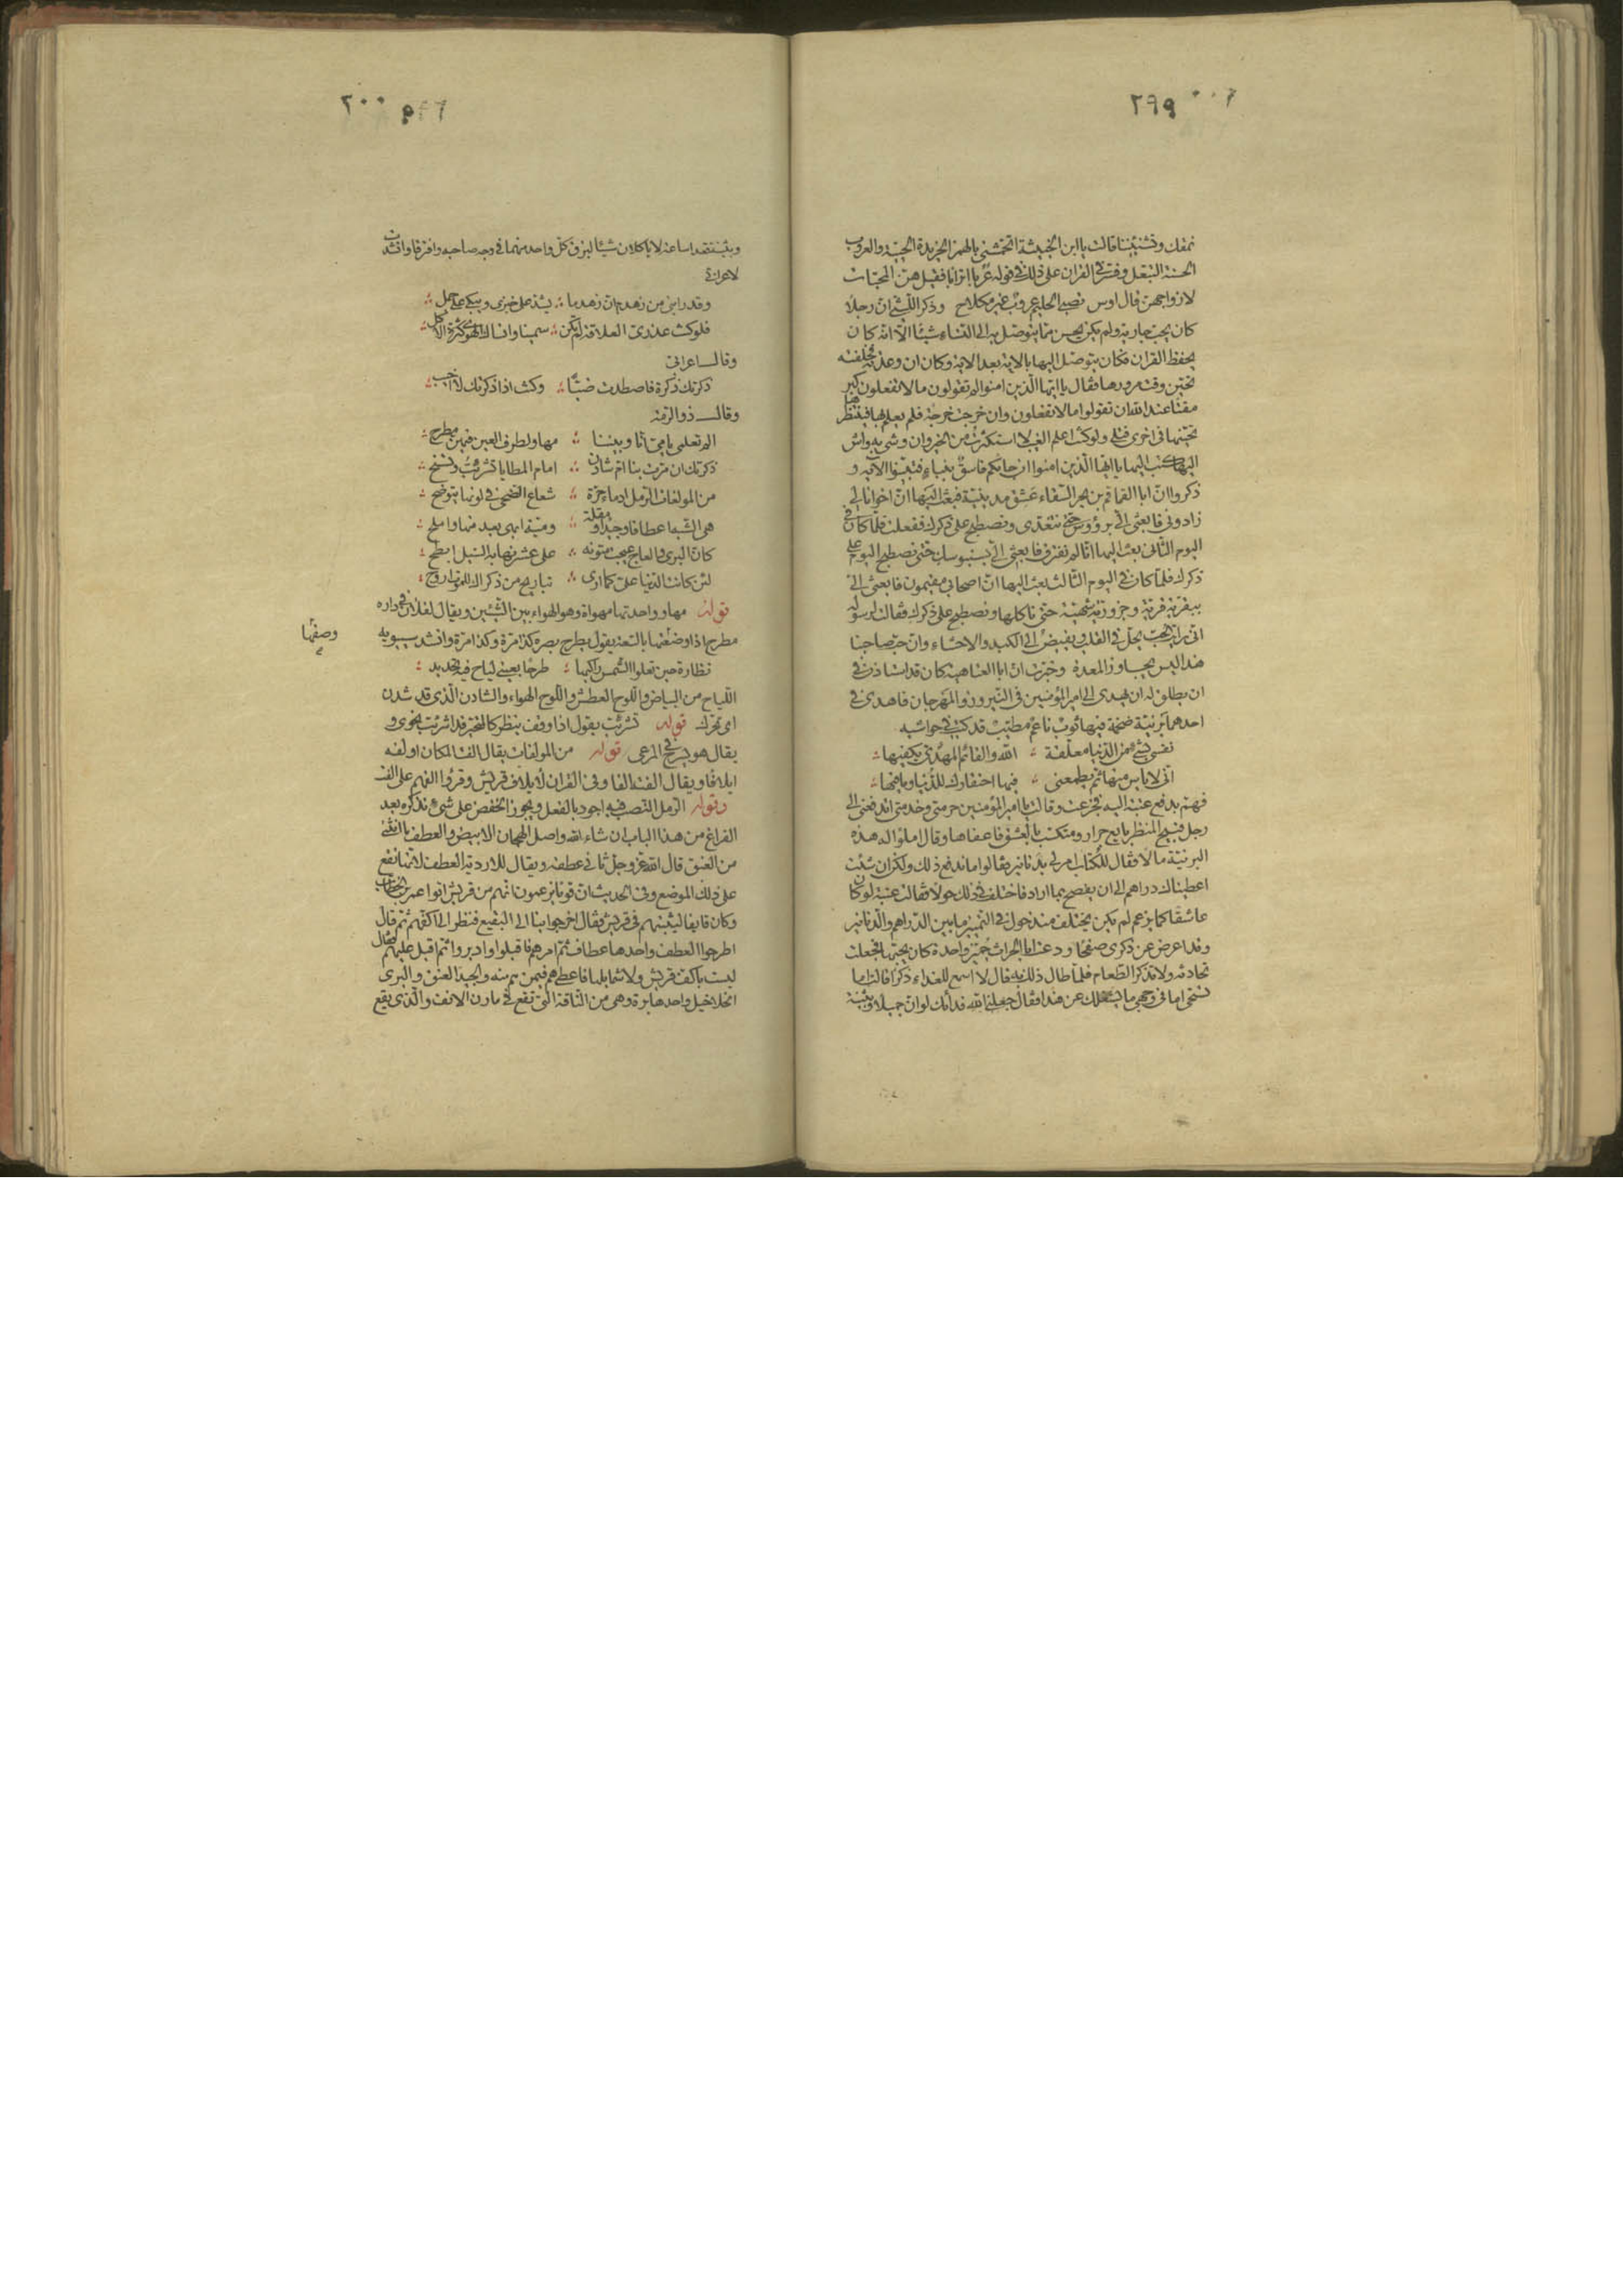 ٢٩٩
نمفك وفشنيئنا قالت يا ابن الخبيثة اتخمشني بالهمز الخريدة الحيية والعروب
الحسنة التبعل وفسر في القران على ذلك في قوله عربا اترابا فقيل هن المحبات
لازواجهن قال اوس تصبى الحليم عروب غير مكلاح وذكر الليثي ان رجلا
كان يحب جارية ولم يكن يحسن مما يتوصل به الى النساء شيئا الا انه كان
يحفظ القران فكان يتوصل اليها بالاية بعد الاية وكان ان وعدته فاخلفته
تحين وقت مرورها فقال يا ايها الذين امنوا لم تقولون ما لا تفعلون كبر
مقتا عند الله ان تقولوا ما لا تفعلون وان خرجت خرجة فلم يعلم بها فينتظرها
تحينها في اخرى فتلى ولو كنت اعلم الغيب لا استكثرت من الخير وان وشى به واش
اليها كتب اليها يا ايها الذين امنوا ان جائكم فاسق بنباء فتبينوا الاية و
ذكروا ان ابا القماقم بن بحر السقاء عشق مدينية فبعث اليها ان اخوانا لي
زادوني فابعثي الي برؤوس حتى نتغدى ونصطبح على ذكرك ففعلت فلما كان في
اليوم الثاني بعث اليها انا لم نفترق فابعثي الي بسنبوسك حتى نصطبح اليوم على
ذكرك فلما كان في اليوم الثالث بعث اليها ان اصحابي مقيمون فابعثي الي
ببقرية قرية وجزورية شهية حتى ناكلها ونصطبح على ذكرك فقالت لرسوله
اني رايت الحب يحل في القلب ويفيض الى الكبد والاحشاء وان حب صاحبنا
هذا ليس يجاوز المعدة وخبرت ان ابا العتاهية كان قد استاذن في
ان يطلق له ان يهدى الى امير المؤمنين في النيروز والمهرجان فاهدى في
احدهما برنية ضخمة فيها ثوب ناعم مطيب قد كتب في حواشيه
نفسي بشيء من الدنيا معلقة الله والقائم المهدي يكفيها
اني لا ياس منها ثم يطمعني فيها احتقارك للدنيا وما فيها
فهم بدفع عتبة اليه فجزعت وقالت يا امير المؤمنين حرمتي وخدمتي اتدفعني الى
رجل قبيح المنظر بايع جرار ومتكسب بالعشق فاعفاها وقال املؤا له هذه
البرنية مالا فقال للكتاب امر لي بدنانير فقالوا ما ندفع ذلك ولكن ان شئت
اعطيناك دراهم الى ان يفصح بما اراد فاختلف في ذلك حولا فقالت عتبة لو كان
عاشقا كما يزعم لم يكن يختلف منذ حول في التمييز ما بين الدراهم والدنانير
وقد اعرض عن ذكرى صفحا ودعت ابا الحرث جمين واحدة كان يحبها فجعلت
تحادثه ولا تذكر الطعام فلما طال ذلك به قال لا اسمع للغداء ذكرا قالت اما
تستحي اما في وجهي ما يشغلك عن هذا فقال جعلني الله فداك لو ان جميلا وبثينة
٢٠٠
وبثينة قعدا ساعة لا ياكلان شيئا لبزق كل واحد منهما في وجه صاحبه وافترقا وانشدت
لاعرابي
وقد رابني من زهدم ان زهدما يشد على خبزى ويبكي على جمل
فلو كنت عذرى العلاقة لم تكن سمينا وانساك الهوى كثرة الاكل
وقال اعرابي
ذكرتك ذكرة فاصطدت ضبا وكنت اذا ذكرتك لا اخيب
وقال ذو الرمة
الم تعلمي يا مي انا وبيننا مهاو لطرف العين فيهن مطرح
ذكرتك ان مرت بنا ام شادن امام المطايا تشرئب وتسنح
من المولفات الرمل ادماء حرة شعاع الضحى في لونها يتوضح
هي الشبه اعطافا وجيدا ومقلة ومية ابهى بعد منها واملح
كان البرى والعاج عيجت متونه على عشر نهى به السيل ابطح
لئن كانت الدنيا على كما ارى تباريح من ذكراك للموت اروح
قوله مهاو واحدتها مهواة وهو الهواء بين الشيئين ويقال لفلان في داره
مطرح اذا وصفتها بالسعة يقول يطرح بصره كذا مرة وكذا مرة وانشد سيبويه
وصفتها
نظارة حين تعلو الشمس راكبها طرحا بعيني لياح فيه تحديد
اللياح من البياض واللوح العطش واللوح الهواء والشادن الذي قد شدن
اي تحرك قوله تشرئب يقول اذا وقف ينظر كالمتحير قد اشرئب نحوى و
يقال هو يسرح في المرعى قوله من المولفات يقال الفت المكان اولفه
ايلافا ويقال الفته الفا وفي القران لايلاف قريش وقرؤا الفهم على الف
وقوله الرمل النصب فيه اجود بالفعل ويجوز الخفض على شيء نذكره بعد
الفراغ من هذا الباب ان شاء الله واصل الهجان الابيض والعطف ما انثنى
من العنق قال الله عز وجل ثاني عطفه ويقال للاردية العطف لانها تقع
على ذلك الموضع وفي الحديث ان قوما يزعمون انهم من قريش اتوا عمر بن الخطاب
وكان قايفا ليثبتهم في قريش فقال اخرجوا بنا الى البقيع فنظر الى اكفهم ثم قال
اطرحوا العطف واحدها عطاف ثم امرهم فاقبلوا وادبروا ثم اقبل عليهم فقال
ليست باكف قريش ولا شمايلها فاعطاهم فيمن هم منه والجيد العنق والبرى
الخلاخيل واحدها برة وهي من الناقة التي تقع في مارن الانف والذي يقع